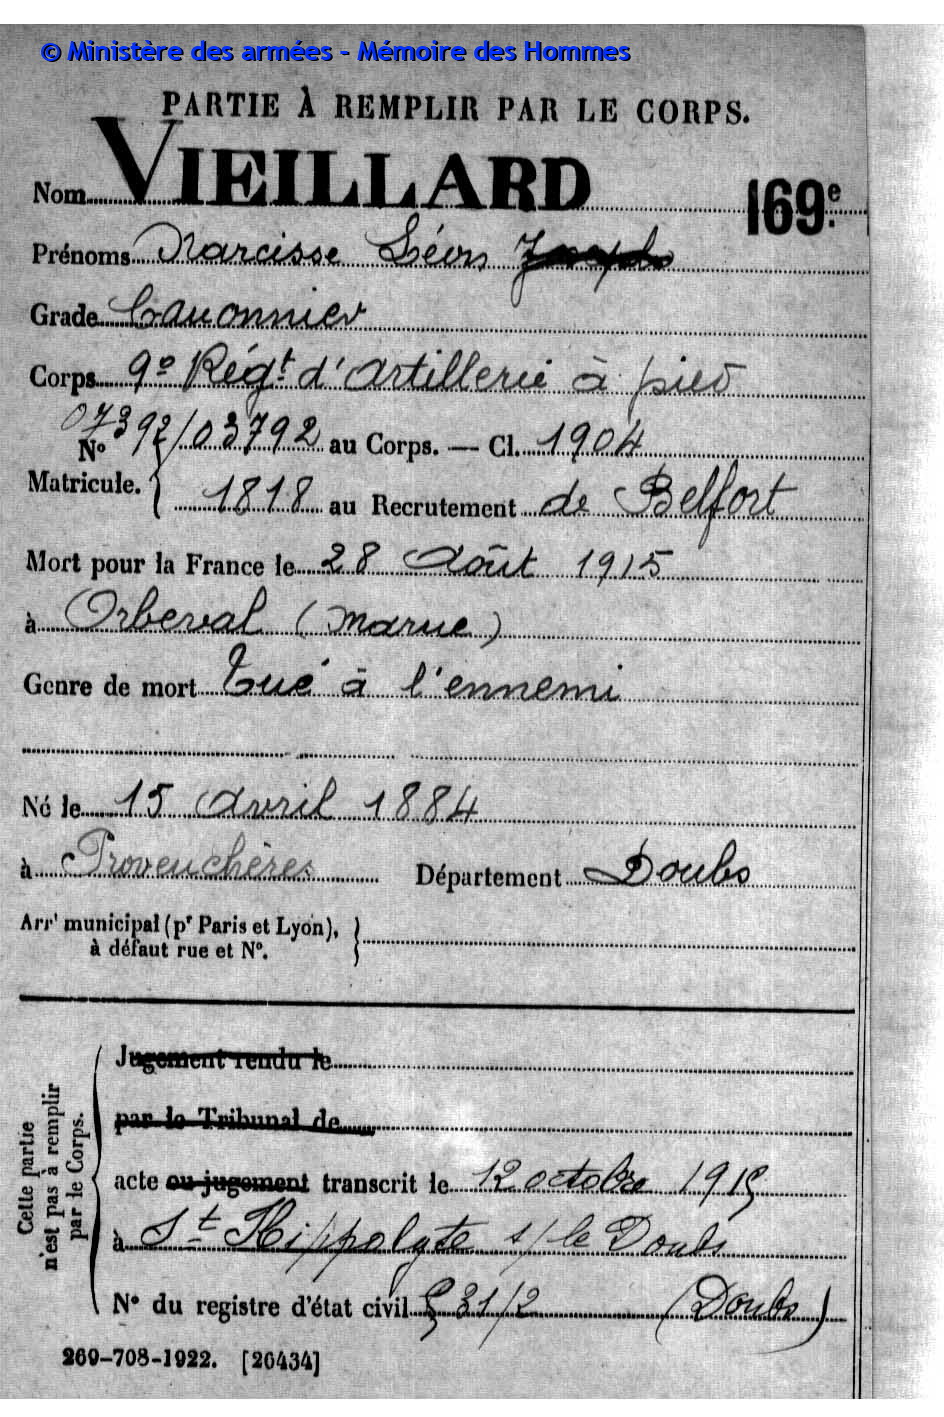 © Ministère des armées - Mémoire des Hommes
PARTIE À REMPLIR PAR LE CORPS.
Nom VIEILLARD 169e.
Prénoms Narcisse Léon Joseph
Grade Canonnier
Corps 9e Régt d'Artillerie à pied
07392/03792 au Corps. — Cl. 1904
No Matricule. 1818 au Recrutement de Belfort
Mort pour la France le 28 Août 1915
à Orbeval (Marne)
Genre de mort Tué à l'ennemi
Né le 15 Avril 1884
à Provenchères Département Doubs
Arrt municipal (pr Paris et Lyon),
à défaut rue et No.
Cette partie
n'est pas à remplir
par le Corps.
Jugement rendu le
par le Tribunal de
acte ou jugement transcrit le 12 octobre 1915
à St Hippolyte s/ le Doubs
No du registre d'état civil 531/2 (Doubs)
269-708-1922. [26434]